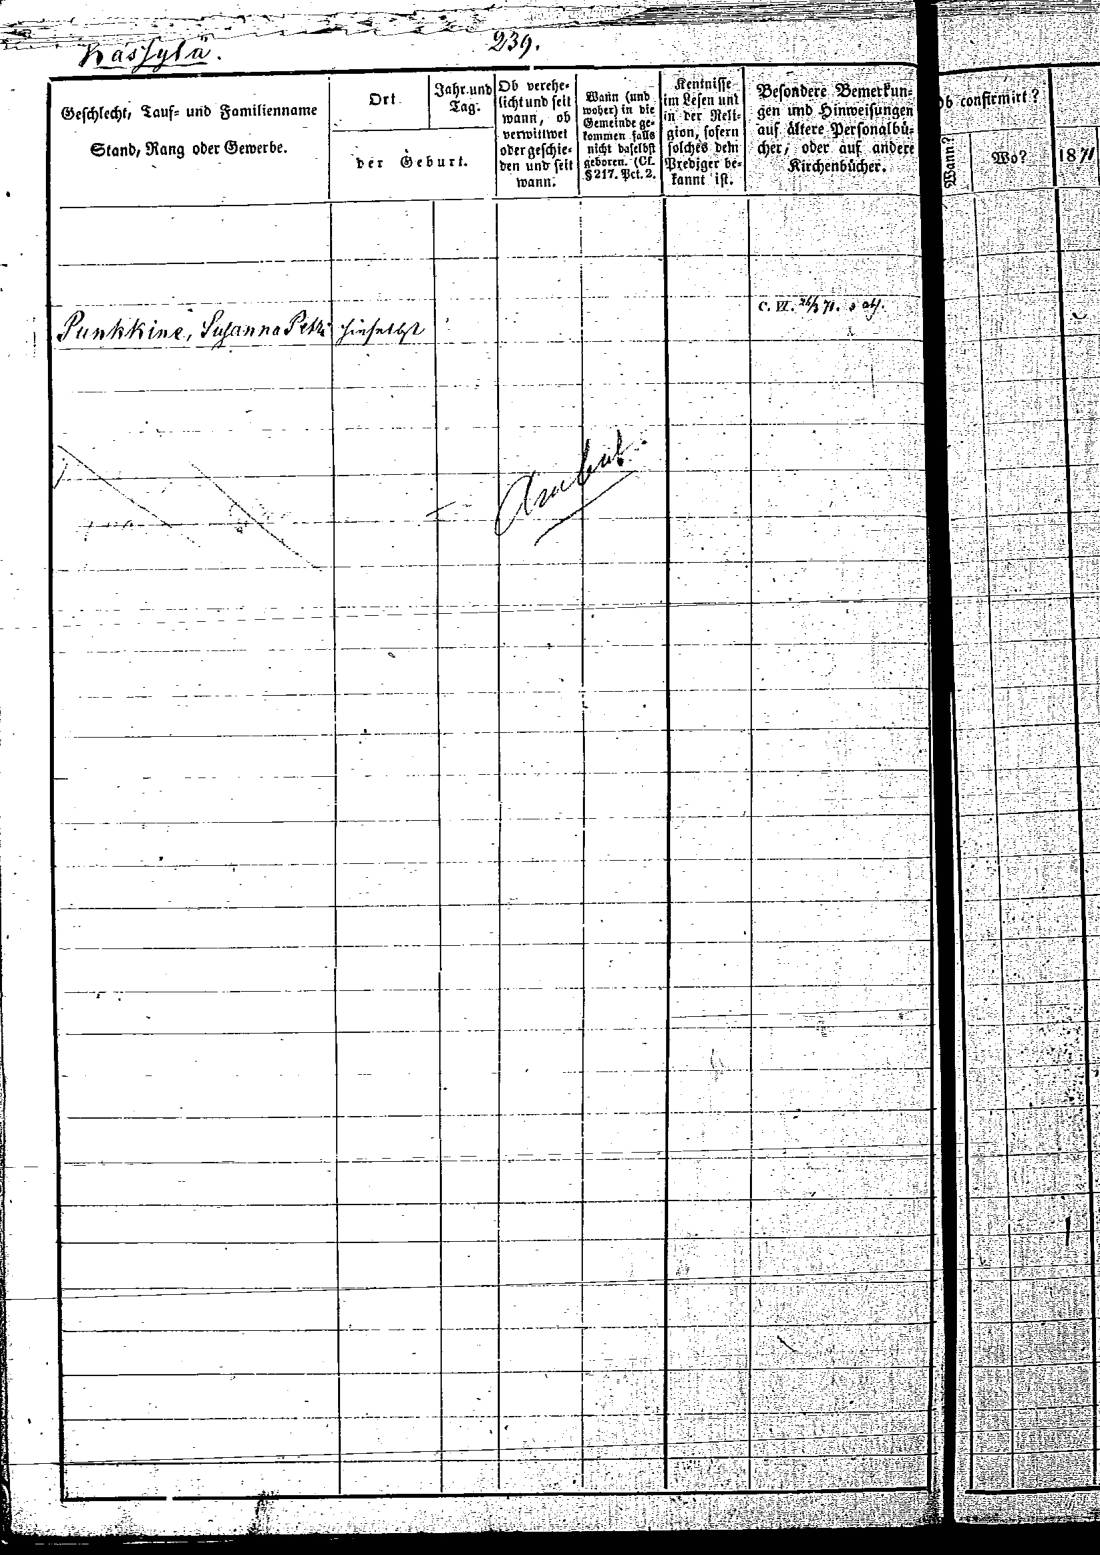 Kassylä.
239.
Geschlecht, Tauf- und Familienname
Stand, Rang oder Gewerbe.
Ort
Jahr und
Tag.
der Geburt.
Ob verehe-
licht und seit
wann, ob
verwittwet
oder geschie-
den und seit
wann.
Wann (und
woher) in die
Gemeinde ge-
kommen falls
nicht daselbst
geboren. (Cf.
§ 217. Pct. 2.
Kentnisse
im Lesen und
in der Reli-
gion, sofern
solches dem
Prediger be-
kannt ist.
Besondere Bemerkun-
gen und Hinweisungen
auf ältere Personalbü-
cher, oder auf andere
Kirchenbücher.
Ob confirmirt?
Wann?
Wo?
1871
C. VI. 71.
Punkkine, Susanna Petr. hieselbst